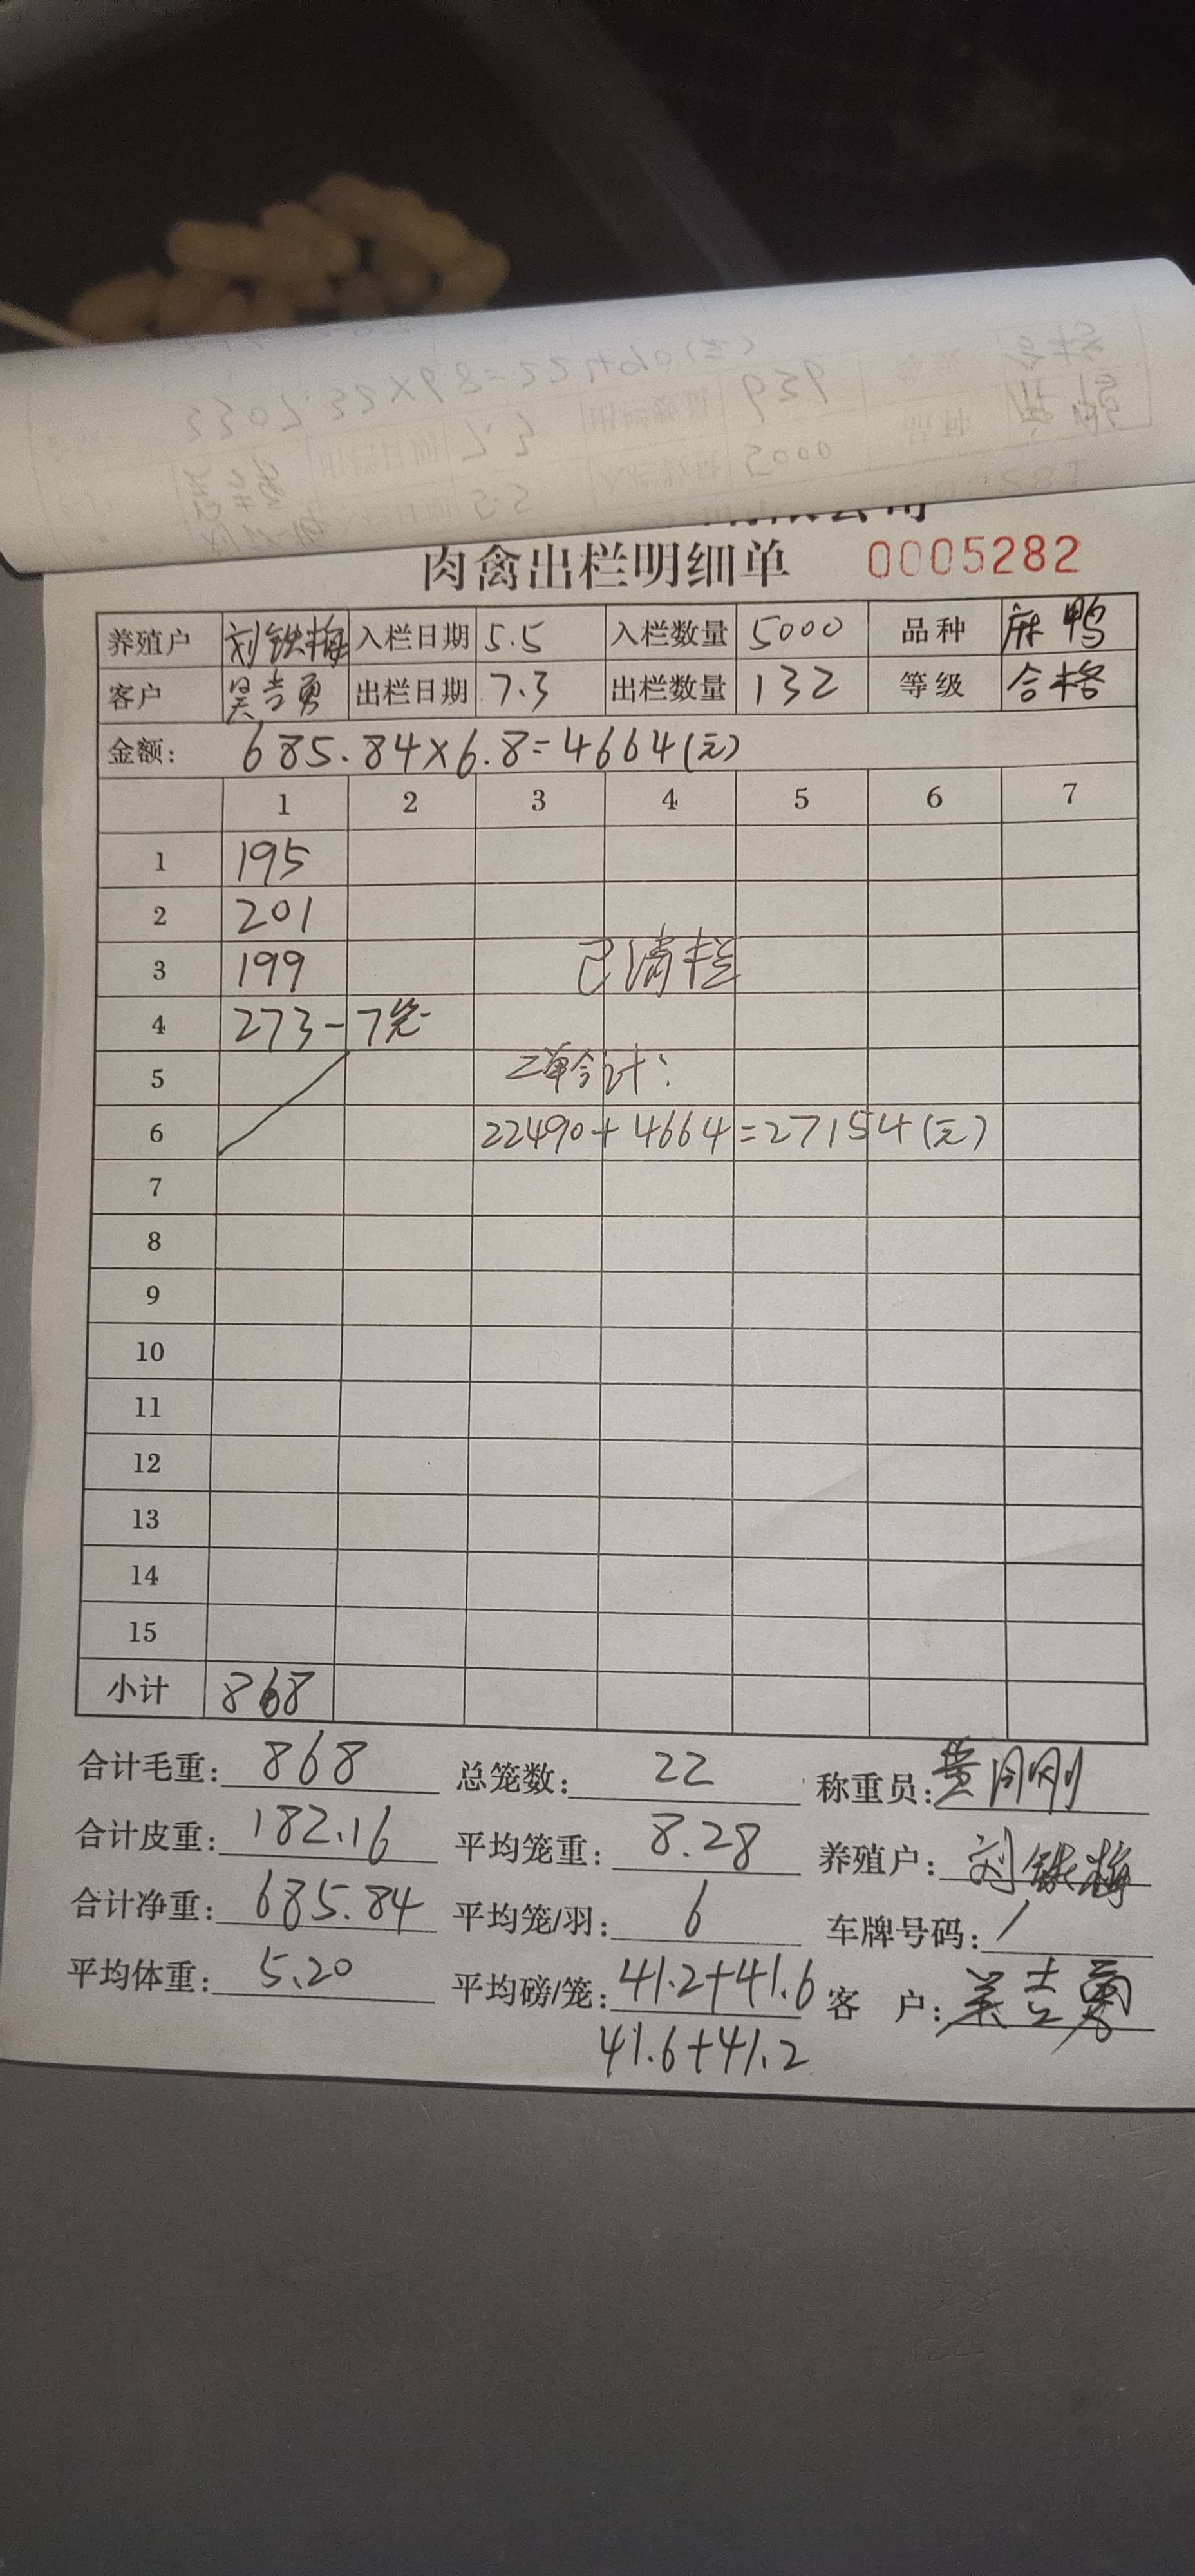 肉禽出栏明细单 0005282
养殖户 刘铁梅 入栏日期 5.5 入栏数量 5000 品种 麻鸭
客户 吴吉勇 出栏日期 7.3 出栏数量 132 等级 合格
金额： 685.84×6.8=4664(元)
1 2 3 4 5 6 7
1 195
2 201
3 199 已清栏
4 273-7笼
5 二单合计：
6 22490+4664=27154(元)
7
8
9
10
11
12
13
14
15
小计 868
合计毛重： 868 总笼数： 22 称重员：
合计皮重： 182.16 平均笼重： 8.28 养殖户： 刘铁梅
合计净重： 685.84 平均笼/羽： 6 车牌号码： /
平均体重： 5.20 平均磅/笼： 41.2+41.6 客 户： 吴吉勇
41.6+41.2